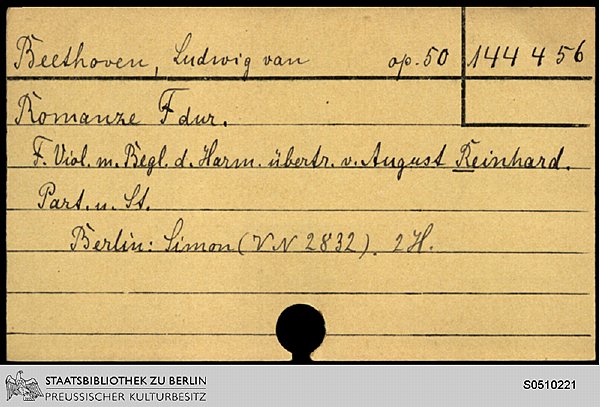 Beethoven, Ludwig van op. 50 144 456
Romanze F dur.
F. Viol. m. Begl. d. Harm. übertr. v. August Reinhard.
Part. u. St.
Berlin: Simon (VN 2832). 2 H.
STAATSBIBLIOTHEK ZU BERLIN
PREUSSISCHER KULTURBESITZ
S0510221